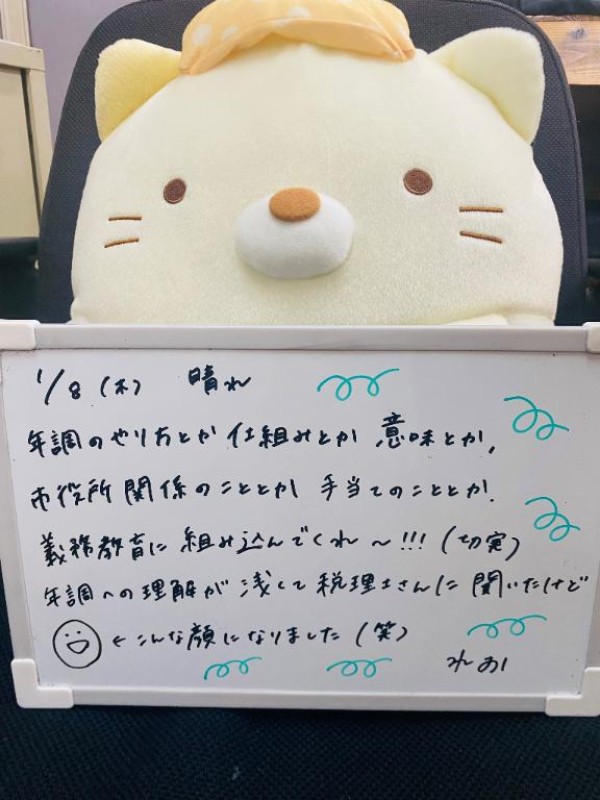 1/8(木) 晴れ
年調のやり方とか仕組みとか、意味とか、
市役所関係のこととか 手当てのこととか、
義務教育に組み込んでくれ〜!!!(切実)
年調への理解が浅くて税理士さんに聞いたけど
←こんな顔になりました(笑)
れおし